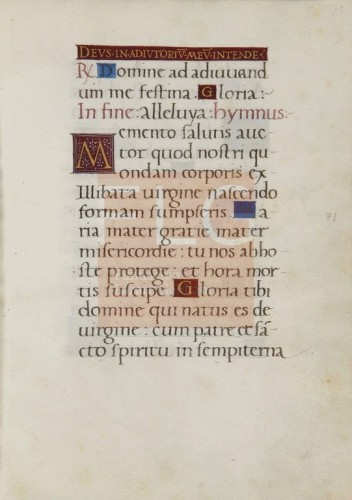 DEVS·IN·ADIVTORIV̄·MEV̄·INTENDE
R Domine ad adiuuand
um me festina . Gloria :
In fine : alleluya : hymnus
Memento salutis auc
tor quod nostri qu
ondam corporis ex
Illibata uirgine nascendo
formam sumpseris . Ma
ria mater gratie mater
misericordie : tu nos abho
ste protege : et hora mor
tis suscipe . Gloria tibi
domine qui natus es de
uirgine : cum patre et sā
cto spiritu in sempiterna